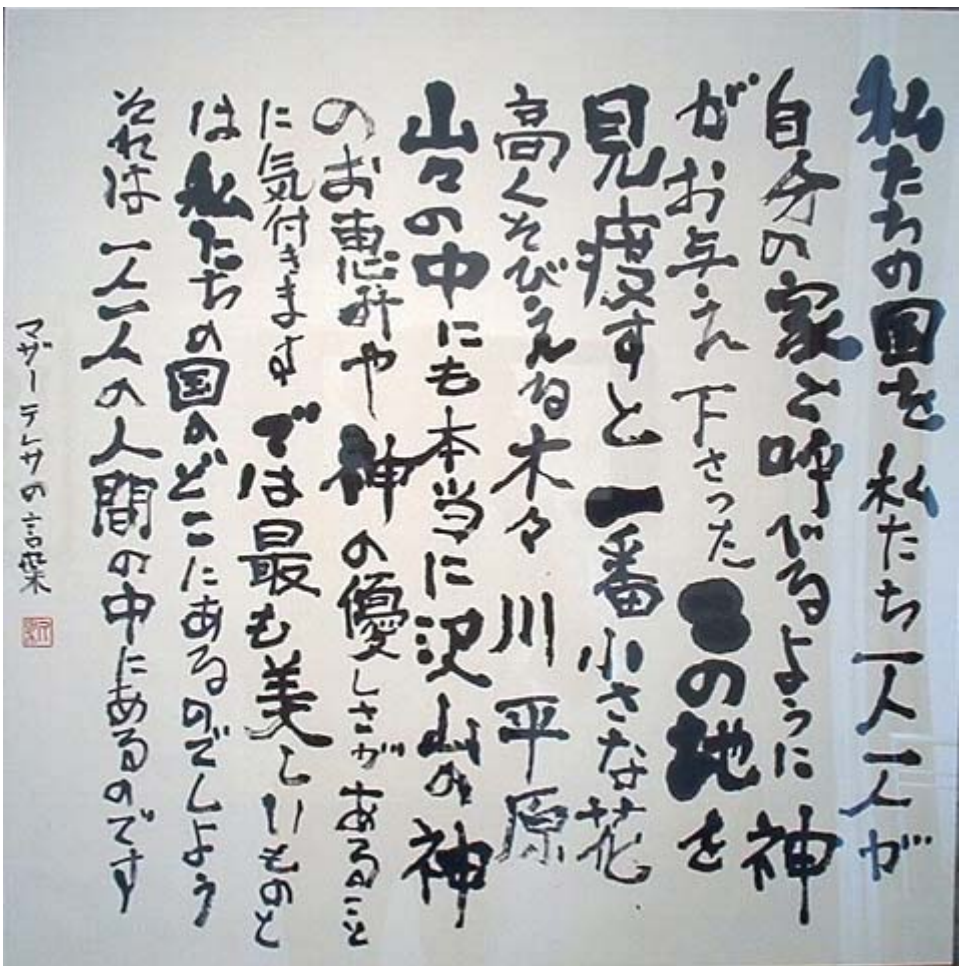 私たちの国を 私たち一人一人が
自身の家と呼べるように 神
がお与え下さった この地を
見渡すと 一番小さな花
高くそびえる木々 川 平原
山々の中にも本当に沢山の神
のお恵みや 神の優しさがあること
に気付きます では最も美しいものと
は 私たちの国のどこにあるのでしょう
それは 一人一人の人間の中にあるのです
マザーテレサの言葉